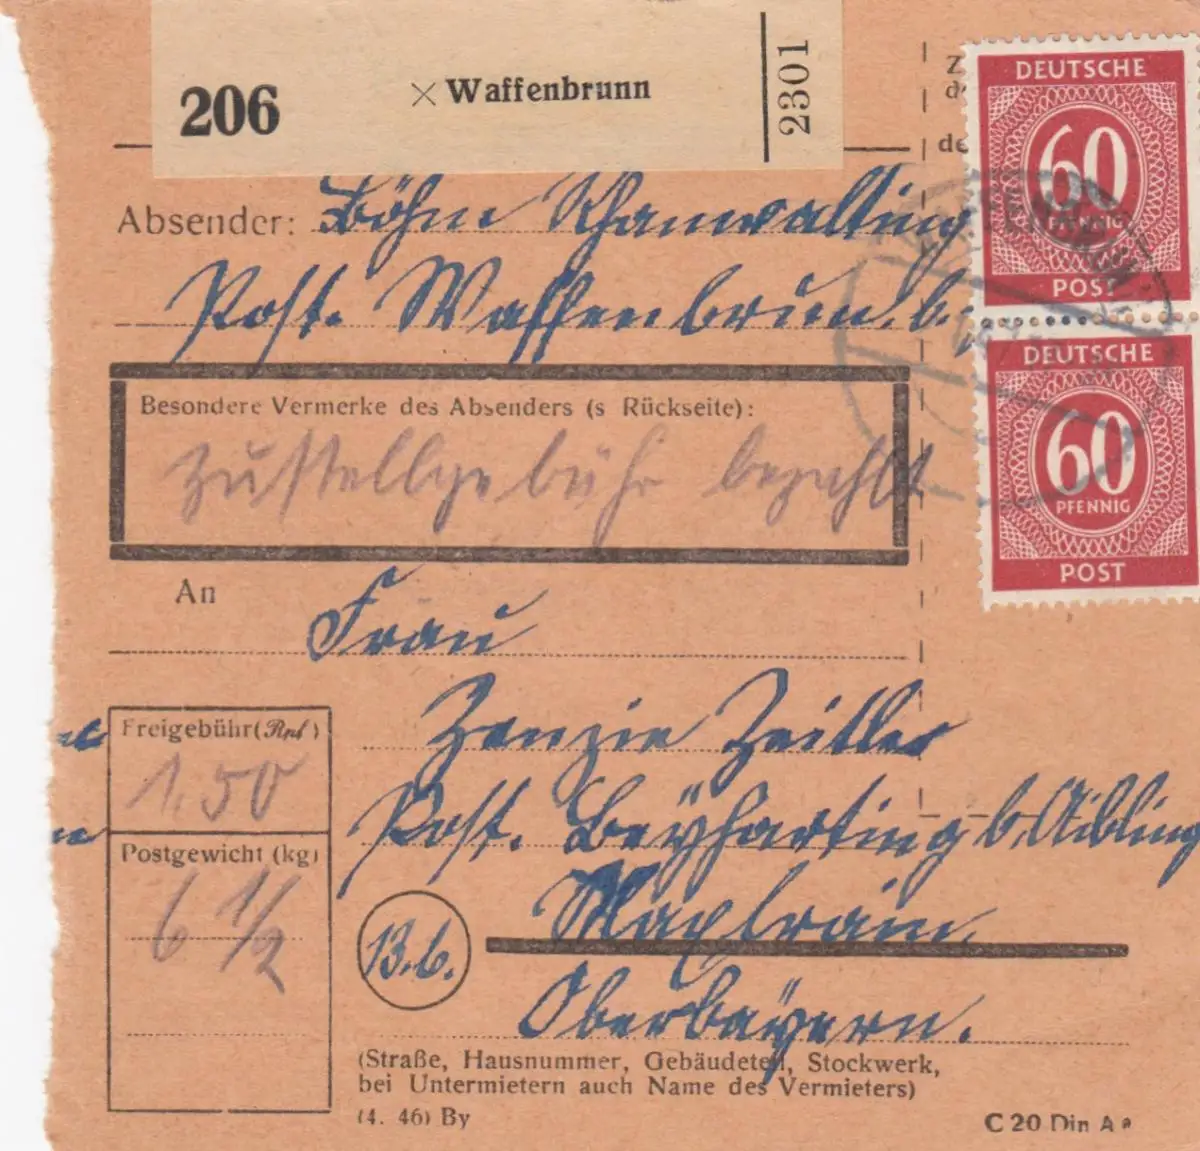 206 × Waffenbrunn 2301
Absender: Böhm Thanwalting
Post. Waffenbrun. b.
Besondere Vermerke des Absenders (s Rückseite):
Zustellgebühr bezahlt
An
Frau
Zenzie Zeitler
Post. Beyharting b. Aibling
Maxlrain.
Oberbayern.
13.b.
Freigebühr (Rpf)
1.50
Postgewicht (kg)
6 1/2
(Straße, Hausnummer, Gebäudeteil, Stockwerk,
bei Untermietern auch Name des Vermieters)
(4. 46) By
C 20 Din A
DEUTSCHE
60
PFENNIG
POST
DEUTSCHE
60
PFENNIG
POST